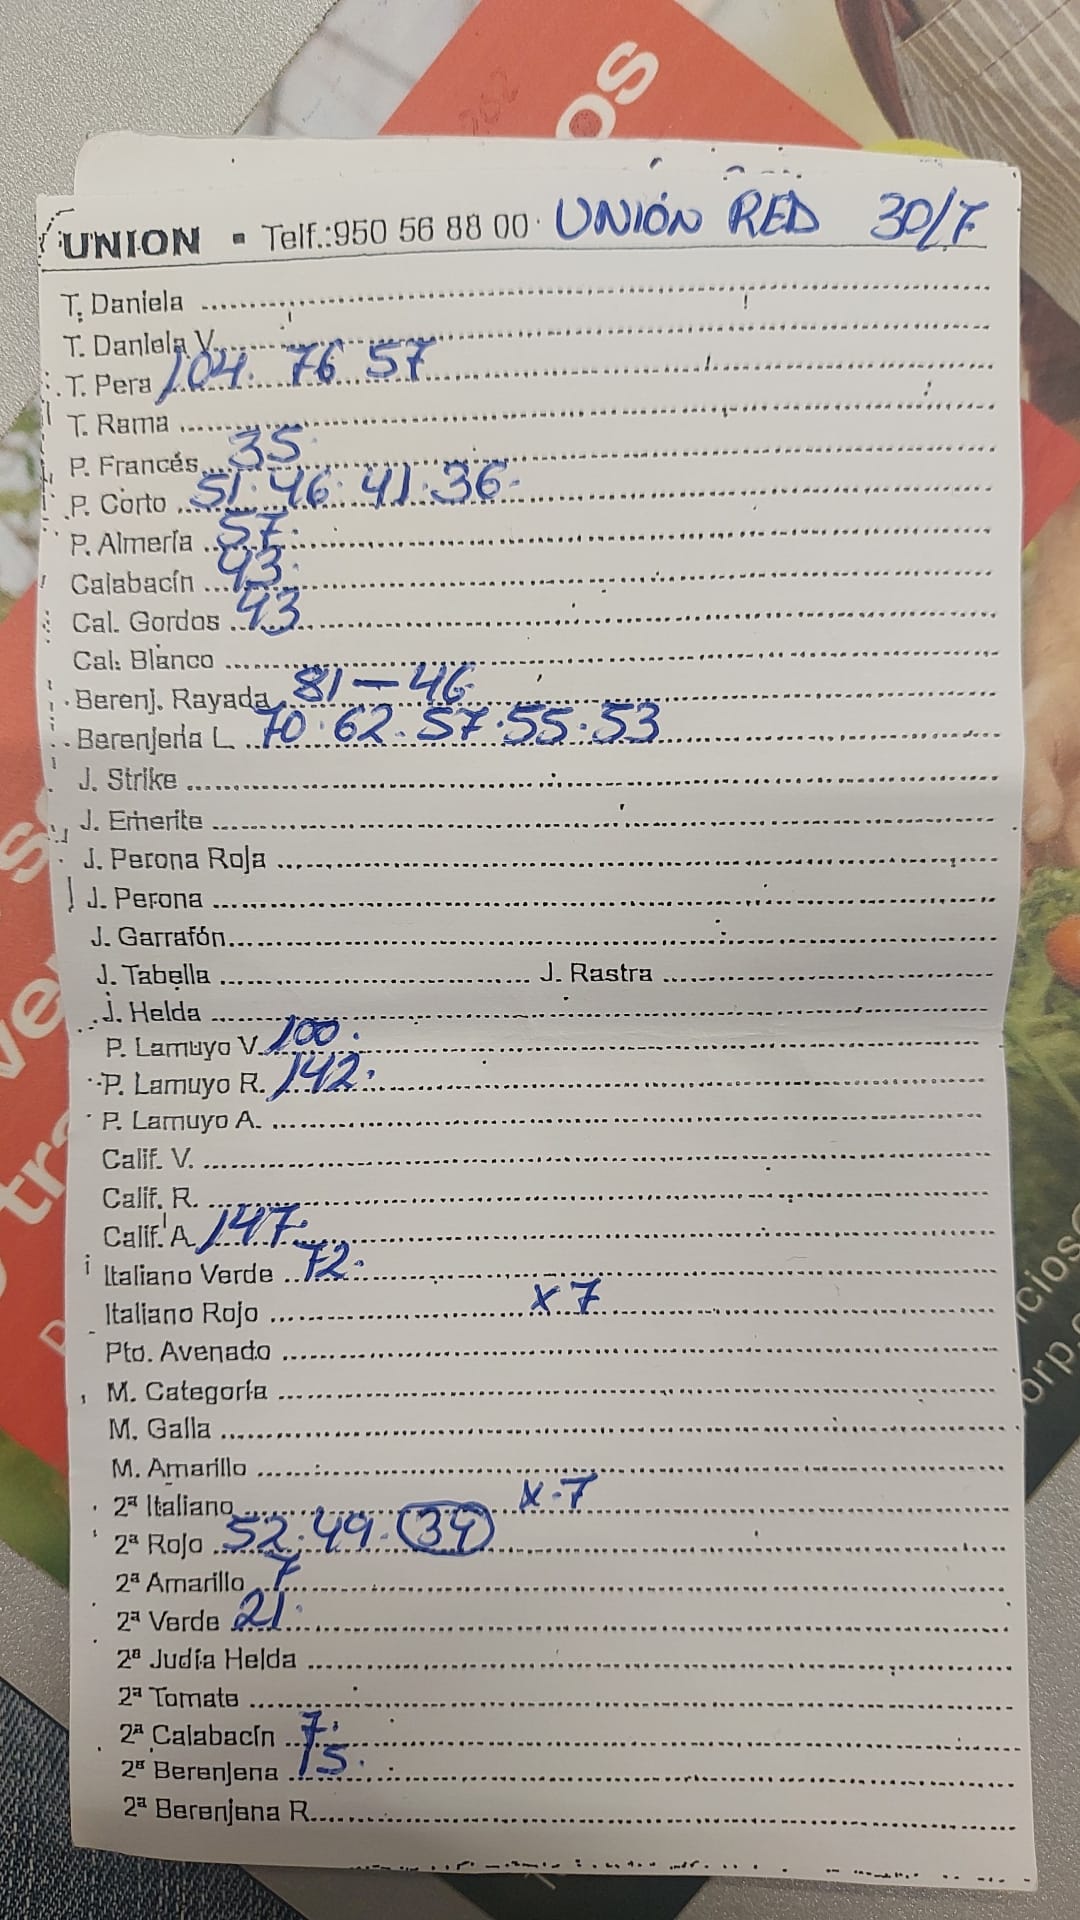 OS
UNION - Telf.:950 56 88 00 UNIÓN RED 30/7
T. Daniela
T. Daniela V.
T. Pera 104. 76 57
T. Rama
P. Francés 35.
P. Corto 51. 46. 41. 36.
P. Almería 57.
Calabacín 43.
Cal. Gordos 43
Cal. Blanco
Berenj. Rayada 81 - 46
Berenjena L. 70. 62. 57. 55. 53
J. Strike
J. Emerite
J. Perona Roja
J. Perona
J. Garrafón
J. Tabella J. Rastra
J. Helda
P. Lamuyo V. 100.
P. Lamuyo R. 142.
P. Lamuyo A.
Calif. V.
Calif. R.
Calif. A. 147.
Italiano Verde 72.
Italiano Rojo x 7
Pto. Avenado
M. Categoría
M. Galla
M. Amarillo
2ª Italiano x. 7
2ª Rojo 52. 49. 34
2ª Amarillo 7
2ª Verde 21.
2ª Judía Helda
2ª Tomate
2ª Calabacín 7.
2ª Berenjena 15.
2ª Berenjena R.